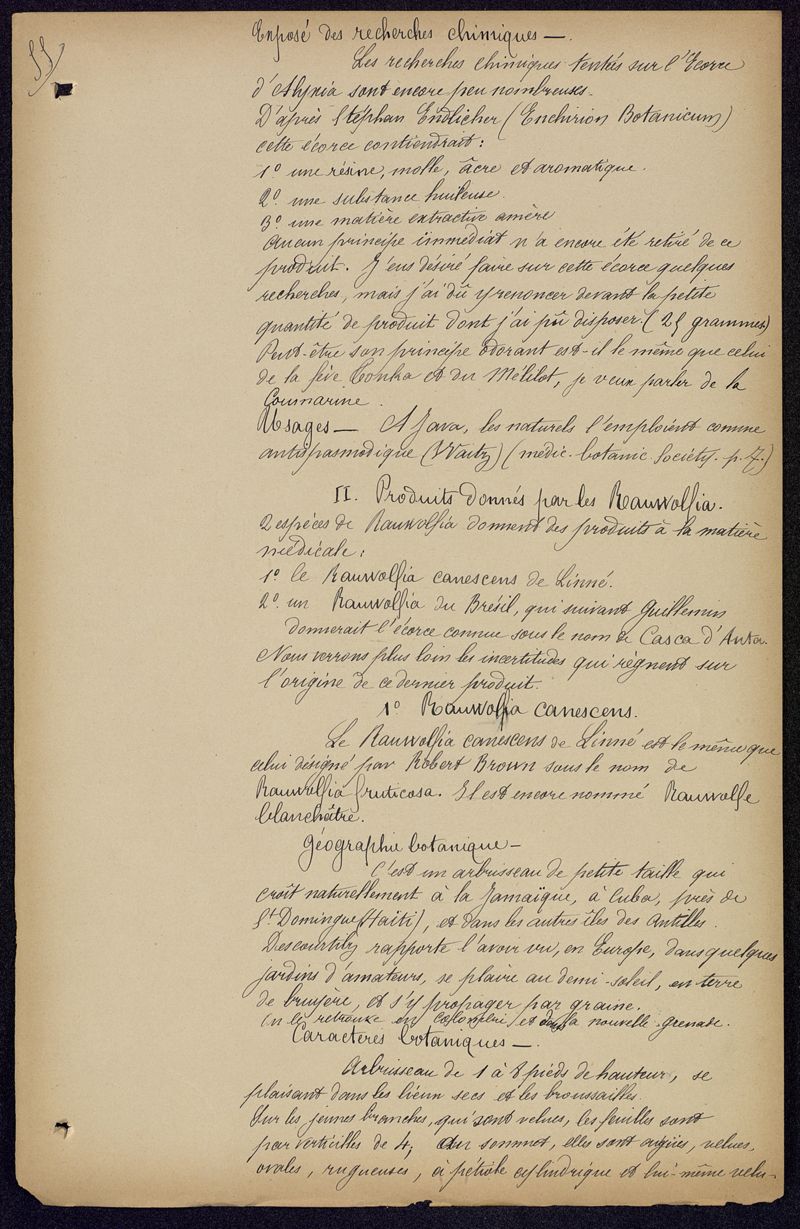 55/
Exposé des recherches chimiques —.
Les recherches chimiques tentés sur l'Ecorce
d'Alyxia sont encore peu nombreuses.
D'après Stéphan Endlicher (Enchirion Botanicum)
cette écorce contiendrait:
1º une résine, molle, âcre et aromatique.
2º une substance huileuse.
3º une matière extractive amère
Aucun principe immédiat n'a encore été retiré de ce
produit. J'eus désiré faire sur cette écorce quelques
recherches, mais j'ai dû y renoncer devant la petite
quantité de produit dont j'ai pû disposer. (25 grammes)
Peut-être son principe odorant est-il le même que celui
de la fève Tonka et du Mélilot, je veux parler de la
Coumarine.
Usages — A Java, les naturels l'emploient comme
antispasmodique (Waitz) (medic. botanic Society. p. 7.)
II. Produits donnés par les Rauwolfia.
2 espèces de Rauwolfia donnent des produits à la matière
médicale:
1º le Rauwolfia canescens de Linné.
2º un Rauwolfia du Brésil, qui suivant Guillemin
donnerait l'écorce connue sous le nom de Casca d'Anta.
Nous verrons plus loin les incertitudes qui règnent sur
l'origine de ce dernier produit.
1º Rauwolfia canescens.
Le Rauwolfia canescens de Linné est le même que
celui désigné par Robert Brown sous le nom de
Rauwolfia fruticosa. Il est encore nommé Rauwolfe
blanchâtre.
Géographie botanique —
C'est un arbrisseau de petite taille qui
croît naturellement à la Jamaïque, à Cuba, près de
St Domingue (Haïti), et dans les autres îles des Antilles.
Descourtilz rapporte l'avoir vu, en Europe, dans quelques
jardins d'amateurs, se plaire au demi-soleil, en terre
de bruyère, et s'y propager par graine.
On le retrouve en et dans la nouvelle grenade.
Caractères botaniques —.
Arbrisseau de 1 à 8 pieds de hauteur, se
plaisant dans les lieux secs et les broussailles.
Sur les jeunes branches, qui sont velues, les feuilles sont
par verticilles de 4; Au sommet, elles sont aigües, velues,
ovales, rugueuses, à pétiole cylindrique et lui-même velu-